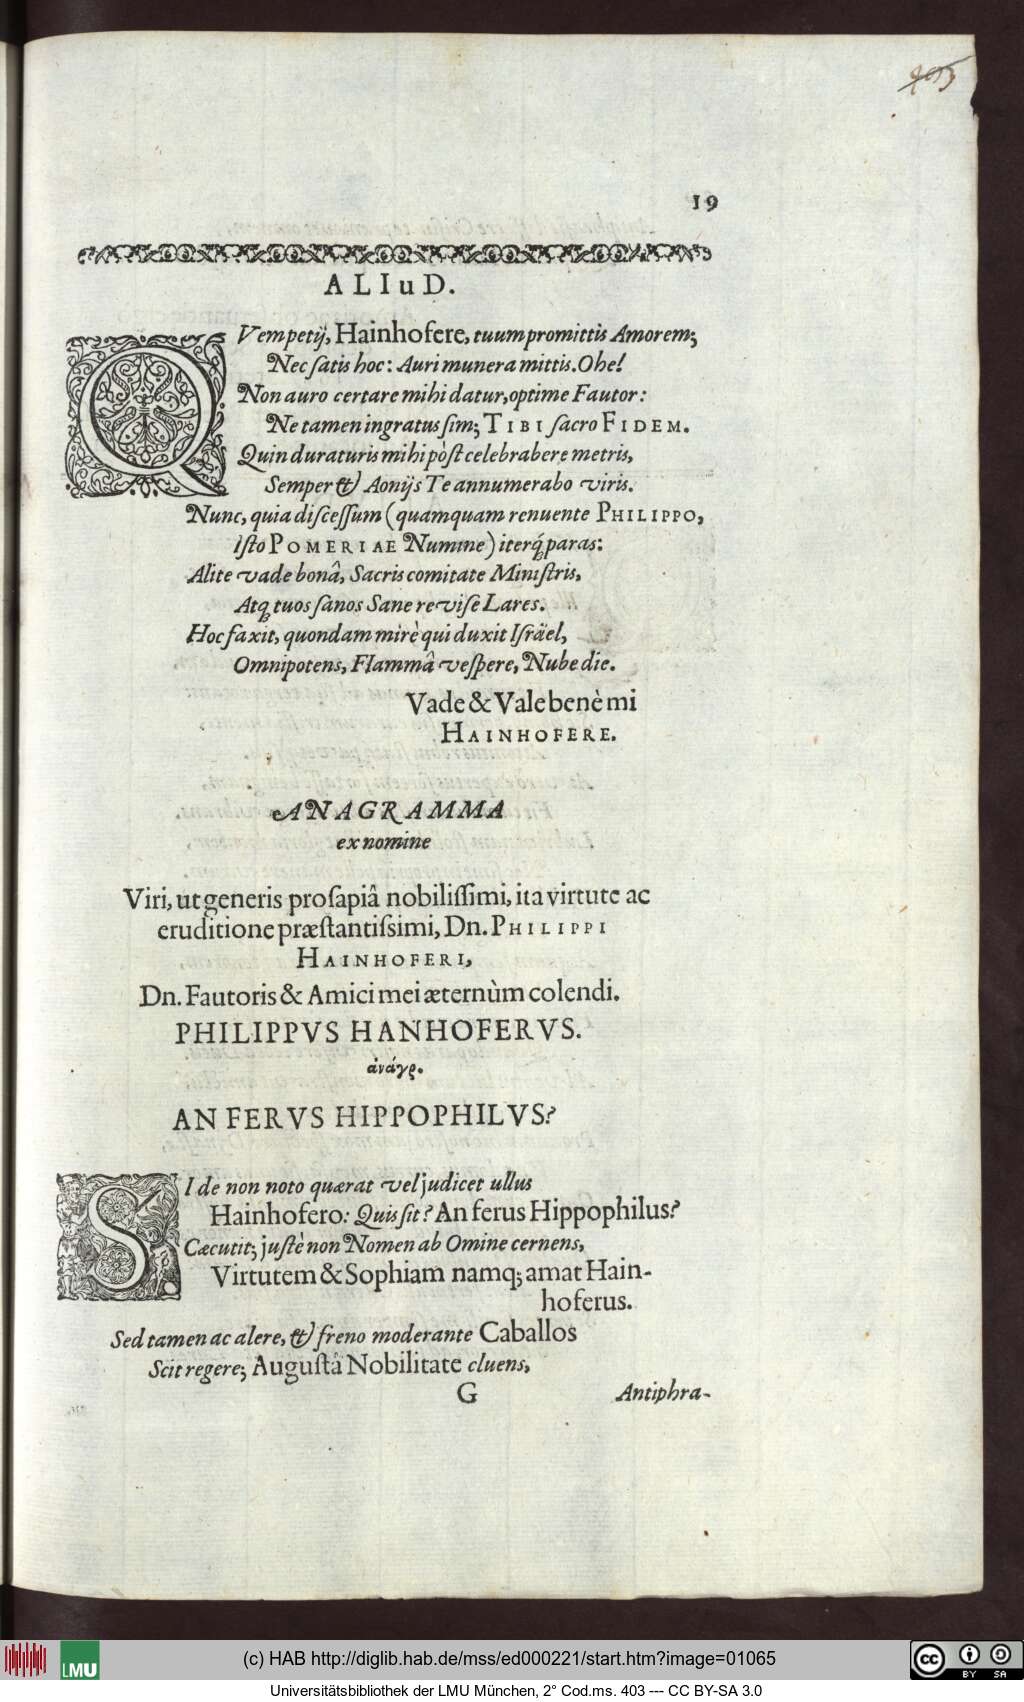 403
19
ALIuD.
QVem petij, Hainhofere, tuum promittis Amorem;
Nec satis hoc: Auri munera mittis. Ohe!
Non auro certare mihi datur, optime Fautor:
Ne tamen ingratus sim; TIBI sacro FIDEM.
Quin duraturis mihi pòst celebrabere metris,
Semper & Aonijs Te annumerabo viris.
Nunc, quia discessum (quamquam renuente PHILIPPO,
Isto POMERIAE Numine) iterq́; paras:
Alite vade bonâ, Sacris comitate Ministris,
Atq; tuos sanos Sane revise Lares.
Hoc faxit, quondam mirè qui duxit Israël,
Omnipotens, Flammâ vespere, Nube die.
Vade & Vale benè mi
HAINHOFERE.
ANAGRAMMA
ex nomine
Viri, ut generis prosapiâ nobilissimi, ita virtute ac
eruditione præstantissimi, Dn. PHILIPPI
HAINHOFERI,
Dn. Fautoris & Amici mei æternùm colendi.
PHILIPPVS HANHOFERVS.
ἀνάγρ.
AN FERVS HIPPOPHILVS?
SI de non noto quærat vel judicet ullus
Hainhofero: Quis sit? An ferus Hippophilus?
Cæcutit; justè non Nomen ab Omine cernens,
Virtutem & Sophiam namq; amat Hain-
hoferus.
Sed tamen ac alere, & freno moderante Caballos
Scit regere; Augustâ Nobilitate cluens,
G Antiphra-
LMU
(c) HAB http://diglib.hab.de/mss/ed000221/start.htm?image=01065
cc BY SA
Universitätsbibliothek der LMU München, 2° Cod.ms. 403 --- CC BY-SA 3.0